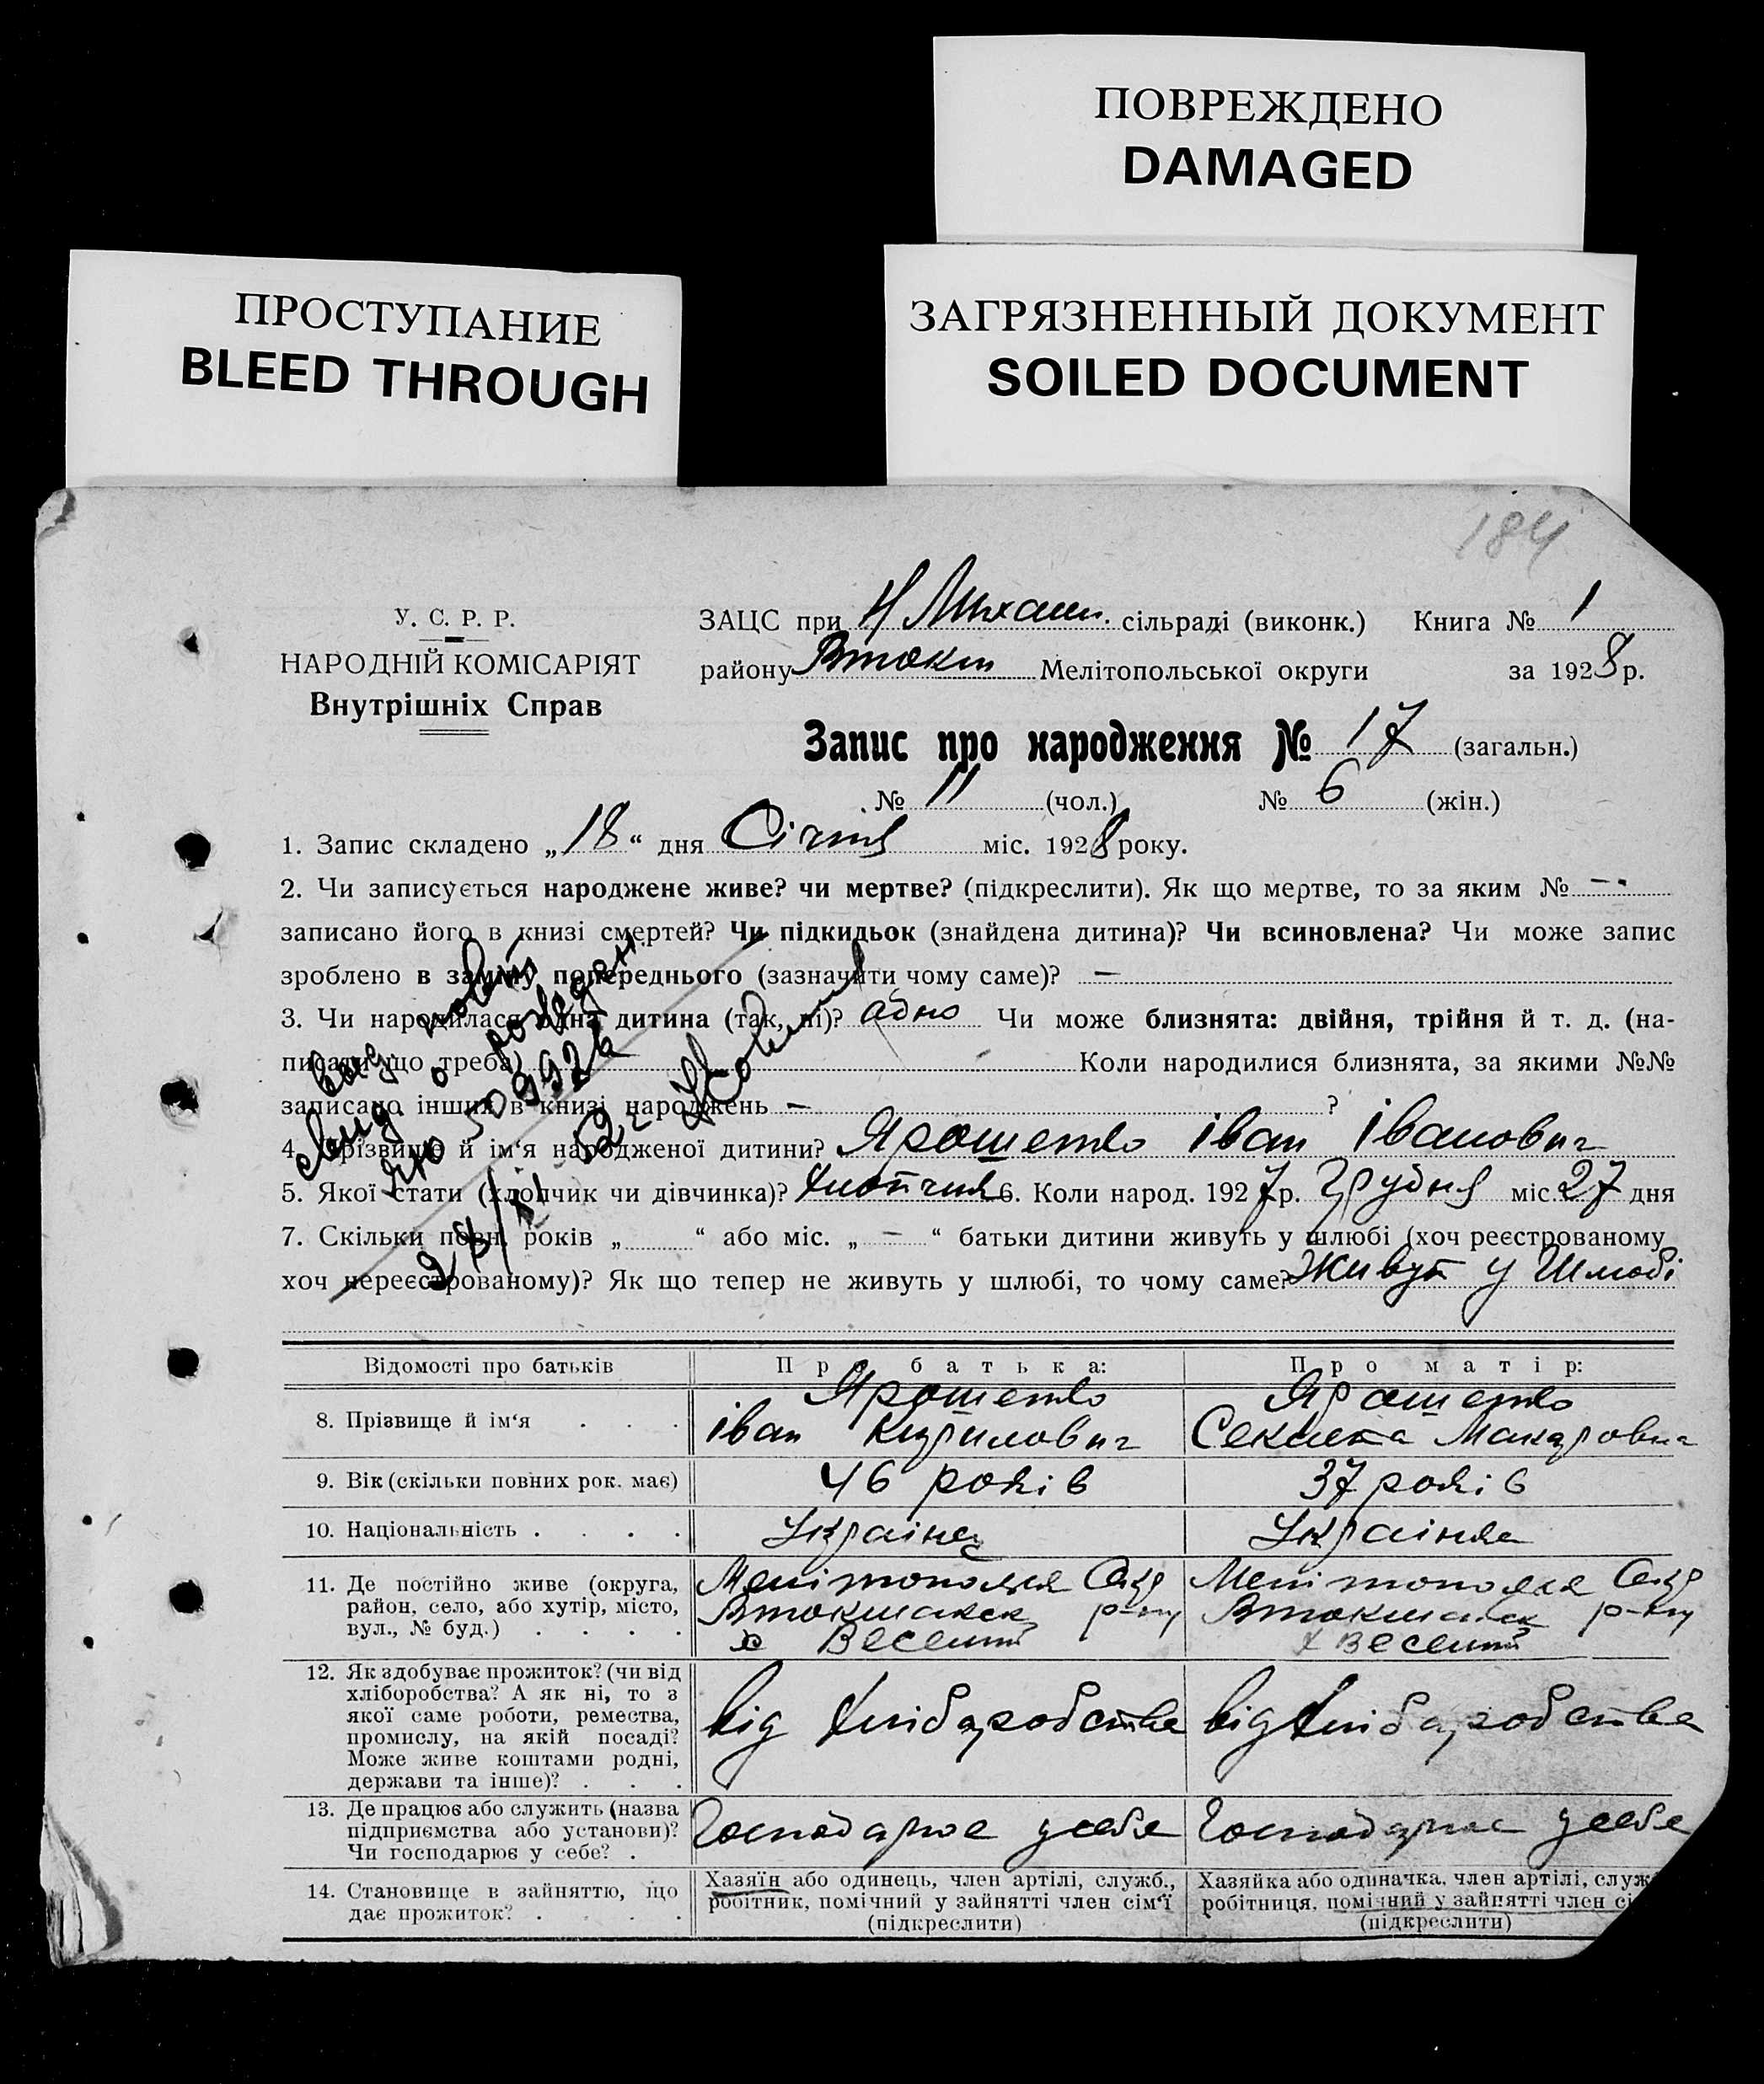 ПОВРЕЖДЕНО
DAMAGED
ПРОСТУПАНИЕ
BLEED THROUGH
ЗАГРЯЗНЕННЫЙ ДОКУМЕНТ
SOILED DOCUMENT
184
У. С. Р. Р.
НАРОДНІЙ КОМІСАРІЯТ
Внутрішніх Справ
ЗАЦС при Н Михайл. сільраді (виконк.) Книга № 1
району Втокм Мелітопольської округи за 1928 р.
Запис про народження № 17 (загальн.)
№ 11 (чол.) № 6 (жін.)
1. Запис складено „18“ дня Січня міс. 1928 року.
2. Чи записується народжене живе? чи мертве? (підкреслити). Як що мертве, то за яким № —
записано його в книзі смертей? Чи підкидьок (знайдена дитина)? Чи всиновлена? Чи може запис
зроблено в заміну попереднього (зазначити чому саме)? —
3. Чи народилася одна дитина (так, ні)? одно Чи може близнята: двійня, трійня й т. д. (на-
писати що треба) Коли народилися близнята, за якими №№
записано інших в книзі народжень — ?
4. Прізвище й ім‘я народженої дитини? Ярошенко Іван Іванович
5. Якої стати (хлопчик чи дівчинка)? Хлопчик 6. Коли народ. 1927 р. Грудня міс. 27 дня
7. Скільки повн. років „ “ або міс. „ — “ батьки дитини живуть у шлюбі (хоч реєстрованому
хоч нереєстрованому)? Як що тепер не живуть у шлюбі, то чому саме? Живут у Шлюбі
выд. повт.
свид. о рожден
ЯЮ 509926
28/II 52 г.
Відомості про батьків Про батька: Про матір:
8. Прізвище й ім‘я . . . Ярошенко Ярошенко
Іван Кирилович Секлета Макаровна
9. Вік (скільки повних рок. має) 46 років 37 років
10. Національність . . . . Українец Українка
11. Де постійно живе (округа, Мелітополся Окр Мелітополся Окр
район, село, або хутір, місто, Втокмакск р-ну Втокмакск р-ну
вул., № буд.) . . . . х Веселий х Веселий
12. Як здобуває прожиток? (чи від
хліборобства? А як ні, то з
якої саме роботи, ремества, від хліборобства від хліборобства
промислу, на якій посаді?
Може живе коштами родні,
держави та інше)? . . .
13. Де працює або служить (назва
підприємства або установи)? Господарює у себе Господарює у себе
Чи господарює у себе? .
14. Становище в зайняттю, що
дає прожиток? . . . .
Хазяїн або одинець, член артілі, служб.,
робітник, помічний у зайнятті член сім‘ї
(підкреслити)
Хазяйка або одиначка, член артілі, служ
робітниця, помічний у зайнятті член сі
(підкреслити)